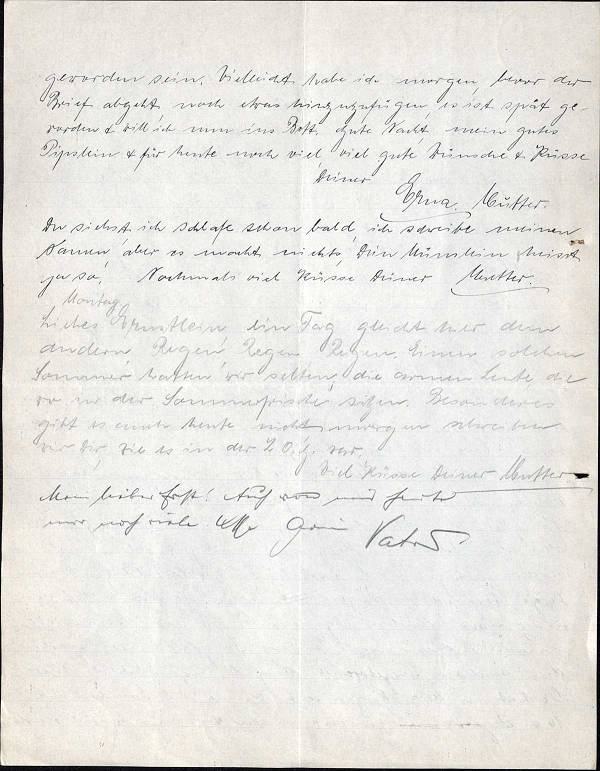 geworden sein. Vielleicht habe ich morgen, bevor der
Brief abgeht noch etwas hinzuzufügen, es ist spät ge-
worden & will ich nun ins Bett, gute Nacht, mein gutes
Pipslein & für heute noch viel, viel gute Wünsche & Küsse
Deiner
Erna. Mutter.
Du siehst ich schlafe schon bald, ich schreibe meinen
Namen, aber es macht nichts, Dein Mümmlein heisst
ja so. Nochmals viel Küsse Deiner Mutter.
Montag.
Liebes Ernstlein ein Tag gleicht hier dem
andern, Regen Regen Regen. Einen solchen
Sommer hatten wir selten, die armen Leute die
wo in der Sommerfrische sitzen. Besonderes
gibt es auch heute nicht, morgen schreiben
wir Dir, wie es in der
Viel Küsse Deiner Mutter
Mein lieber Ernst! Auch von mir heute
nur noch viele Dein Vater